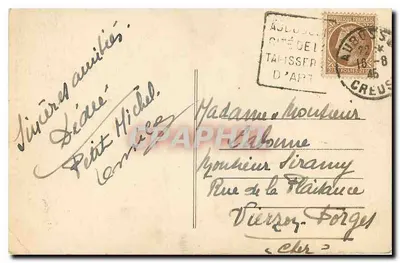 Sincères amitiés.
Dédée
Petit Michel.
AUBUSSON
CITÉ DE LA
TAPISSERIE
D'ART
AUBUSSON
18-8
45
CREUSE
Madame et Monsieur
Monsieur Siramy
Rue de la Plaisance
Vierzon-Forges
(Cher)
CPARAMA